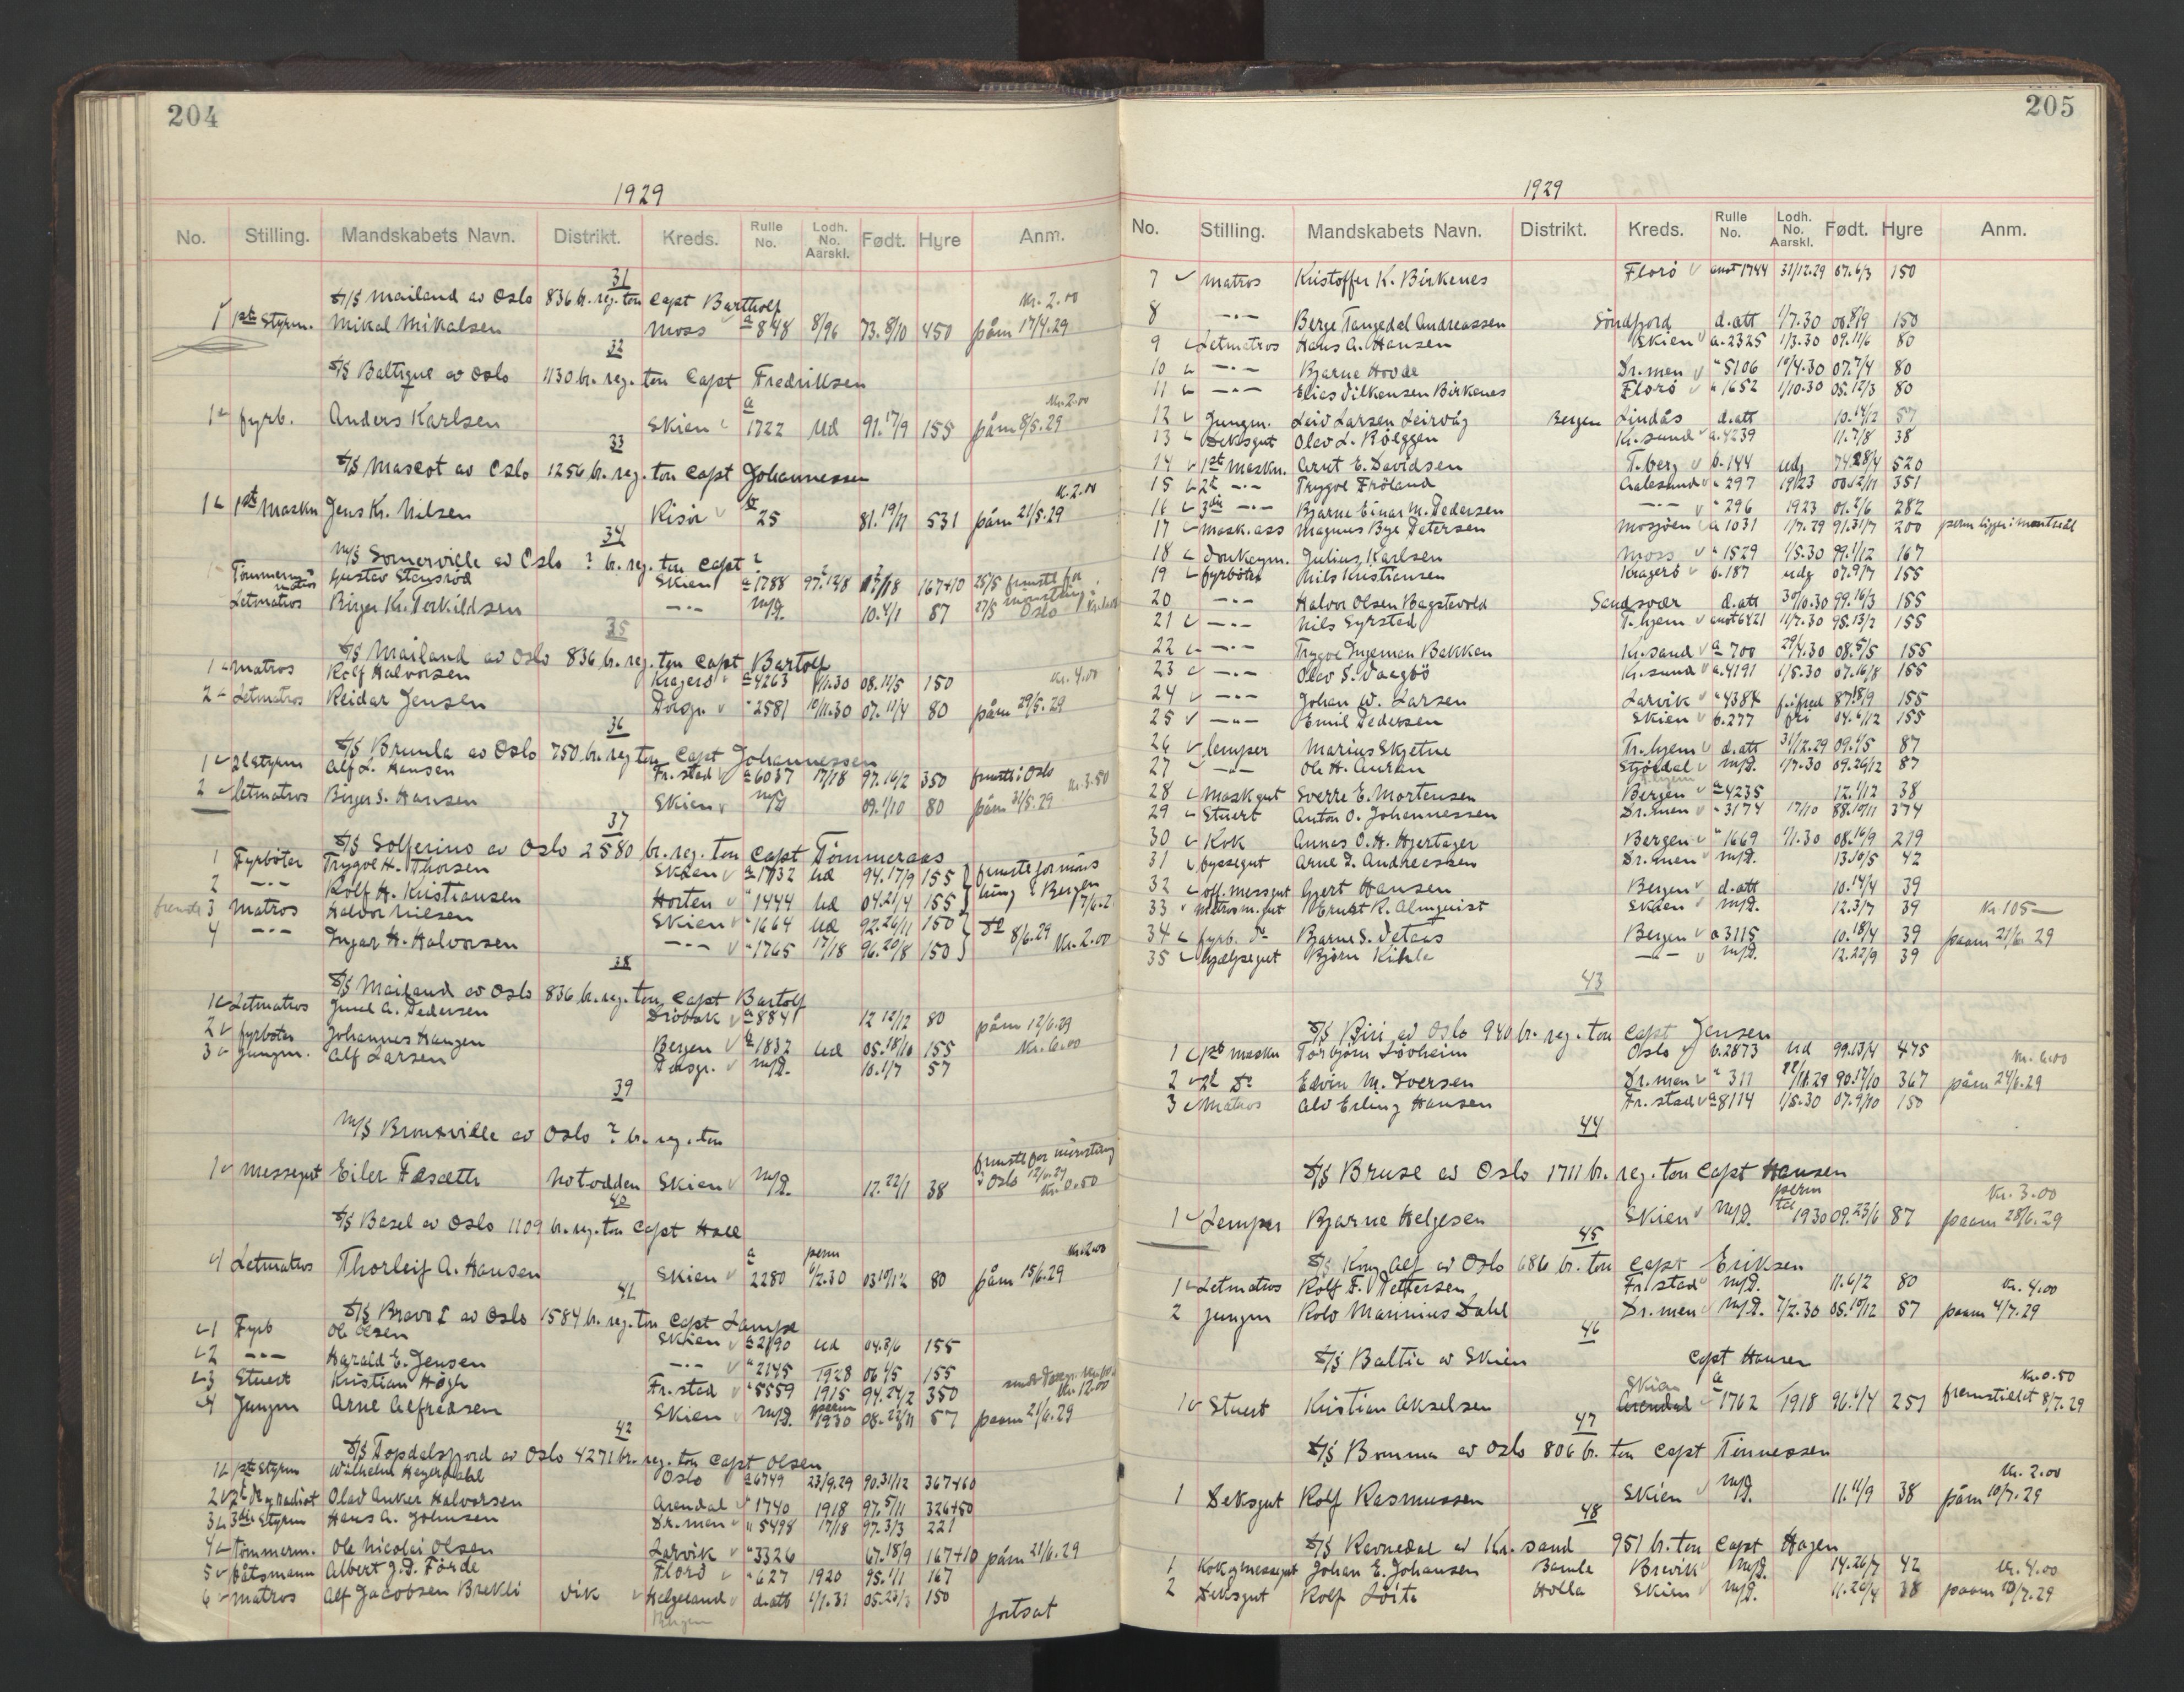 204
1929
No. Stilling. Mandskabets Navn. Distrikt. Kreds. Rulle No. Lodh. No. Aarskl. Født. Hyre Anm.
31
S/S Mailand av Oslo 836 br. reg. ton Capt Bartholf
1 1ste Styrm. Mikal Mikalsen Moss a 848 8/96 73. 8/10 450 påm 17/4.29 Kr. 2.00
32
S/S Baltique av Oslo 1130 br. reg. ton Capt Fredriksen
1 fyrb. Anders Karlsen Skien a 1722 Ud 91. 17/9 155 påm 8/5.29 Kr. 2.00
33
S/S Mascot av Oslo 1256 br. reg. ton Capt Johannessen
1 1ste Maskn Jens Kr. Nilsen Risör b 25 81. 19/11 531 påm 21/5.29 Kr. 2.00
34
M/S Somerville av Oslo ? br. reg. ton Capt ?
Tömmerm matros Gustav Stensröd Skien a 1788 167+10 28/5 fremstl for
Letmatros Birger Kr. Terkildsen -"- M/P. 10. 4/1 87 27/5 mönstring i Oslo
35
S/S Mailand av Oslo 836 br. reg. ton Capt Bartolf
1 Matros Rolf Halvorsen Kragerö a 4263 1/1.30 08. 11/5 150 Kr. 4.00
2 Letmatros Reidar Jensen Porsgr. " 2581 10/11.30 07. 11/4 80 påm 29/5.29
36
S/S Brumla av Oslo 750 br. reg ton Capt Johannessen
1 2d Styrm Alf L. Hansen Fr. stad a 6037 17/18 97. 16/2 350 fremstl i Oslo
2 letmatros Birger S. Hansen Skien M/P 09. 1/10 80 påm 31/5.29 Kr. 3.50
37
S/S Solferino av Oslo 2580 br. reg. ton Capt Tömmeraas
1 Fyrböter Trygve H. Thorsen Skien a 1732 Ud 94. 17/9 155 fremstl for möns
2 -"- Rolf H. Kristiansen Horten " 1444 Ud 04. 21/4 155 tring i Bergen 7/6.2
fremstl 3 Matros Halvor Nilsen Skien " 1664 Ud 92. 26/11 150
4 -"- Ingar H. Halvorsen -"- " 1765 17/18 96. 20/8 150 do 8/6.29 Kr. 2.00
38
S/S Mailand av Oslo 836 br. reg. ton Capt Bartolf
1 Letmatros Juul A. Pedersen Dröbak a 884 12 12/12 80 påm 12/6.29
2 fyrböter Johannes Haugen Bergen a 1832 Ud 05. 18/10 155 Kr. 6.00
3 Jungm. Alf Larsen Porsgr. M/P. 10. 1/7 57
39
M/S Bronxville av Oslo ? br. reg. ton
1 Messegut Eiler Fæsæth Notodden Skien M/P. 12. 22/1 38 fremstl for mönstring i Oslo 12/6.29 Kr. 0.50
40
S/S Basel av Oslo 1109 br. reg. ton Capt Hall
1 Letmatros Thorleif A. Hansen Skien a 2280 perm 6/2.30 03 10/12 80 påm 15/6.29 Kr. 2.00
41
S/S Bravo I av Oslo 1584 br. reg. ton Capt Lampe
1 Fyrb Ole Olsen Skien a 2190 Ud 04. 3/6 155
2 -"- Harald E. Jensen -"- " 2145 1928 06 4/5 155
3 Stuert Kristian Högh Fr. stad " 5559 1915 94. 24/2 350 Kr. 12.00
4 Jungm Arne Alfredsen Skien M/P. perm 1930 08. 22/11 57 paam 21/6.29
42
S/S Topdalsfjord av Oslo 4271 br. reg. ton Capt Olsen
1 1ste Styrm Wilhelm Heyerdahl Oslo a 6749 23/9.29 90. 31/12 367+60
2 2d do og radiot Olav Anker Halvorsen Arendal " 1740 1918 97. 5/11 326+50
3 3die Styrm Hans A. Johnsen Dr. men " 5498 17/18 97. 3/3 221
4 Tømmerm. Ole Nicolai Olsen Larvik " 3326 67. 18/9 167+10 påm 21/6.29
5 Båtsmann Albert J. D. Förde Florö " 627 1920 95. 1/1 167
6 Matros Alf Jacobsen Brekli Vik Helgeland d. att 1/1.31 05. 23/3 150
Bergen
fortsat
205
1929
No. Stilling. Mandskabets Navn. Distrikt. Kreds. Rulle No. Lodh. No. Aarskl. Født. Hyre Anm.
7 Matros Kristoffer K. Birkenes Florö anst 1744 31/12.29 07. 6/3 150
8 -"- Berge Tangedal Andreassen Söndfjord d. att 1/7.30 06. 8/9 150
9 Letmatros Hans A. Hansen Skien a. 2325 1/3.30 09. 11/6 80
10 -"- Bjarne Hovde Dr. men " 5106 10/4.30 07. 7/4 80
11 -"- Elias Vilhensen Birkenes Florö " 1652 1/10.30 05. 12/3 80
12 Jungm. Leiv Larsen Leirvåg Bergen Lindås d. att 10. 14/12 57
13 Deksgut Olav L. Röeggen Kr. sund a. 4239 11. 7/8 38
14 1ste Maskn. Arnt E. Davidsen T. berg b. 144 udg 74. 28/4 520
15 2d -"- Trygve Fröland Aalesund " 297 1923 00. 12/11 351
16 3die -"- Bjarne Einar M. Pedersen -"- " 296 1923 01. 2/6 282
17 Mask. ass Magnus Bye Petersen Mosjöen a 1031 1/7.29 91. 31/7 200 perm ligger i Montreal
18 Donkeym. Julius Karlsen Moss " 1529 1/5.30 99. 1/12 167
19 fyrböter Nils Kristiansen Kragerö b. 187 udg 07. 9/7 155
20 -"- Halvor Olsen Bagstevold Sandsvær d. att 30/10.30 99. 16/3 155
21 -"- Nils Syrstad T. hjem anst 6421 11/7.30 98. 13/2 155
22 -"- Trygve Ingeman Bakken Kr. sand a 700 29/4.30 08. 5/5 155
23 -"- Olav S. Vaagbö Kr. sund a. 4191 1/5.30 07. 16/8 155
24 -"- Johan W. Larsen Larvik " 4384 87. 18/9 155
25 -"- Emil Pedersen Skien b. 277 fri 04. 6/12 155
26 lemper Marius Skjetne Tr. hjem d. att 31/12.29 09. 1/5 87
27 -"- Ole H. Auran Stjördal M/P. 1/7.30 09. 26/12 87
28 Maskgut Sverre E. Mortensen Bergen a 4235 12. 1/12 38
29 Stuert Anton O. Johannessen Dr. men " 3174 17/10 88. 10/11 374
30 Kok Annas O. H. Hjertager Bergen " 1669 1/1.30 08. 16/9 219
31 byssegut Arne D. Andreassen Dr. men M/P. 13. 10/5 42
32 off. messgut Gjert Hansen Bergen d. att 10. 14/4 39
33 Matros m. gut Ernst R. Almquist Skien M/P. 12. 3/7 39 Kr. 105—
34 fyrb. do Bjarne S. Vetaas Bergen a 3115 10. 18/4 39 paam 21/6. 29
35 hjælpegut Björn Kihle -"- M/P. 12. 22/9 39
43
S/S Biri av Oslo 940 br. reg. ton Capt Jensen
1 1ste Maskn Torbjörn Lövheim Oslo b. 2873 Ud 99. 13/4 475 Kr. 6.00
2 2d do Edvin M. Iversen Dr. men " 311 22/11.29 90. 17/10 367 påm 24/6.29
3 Matros Alv Erling Hansen Fr. stad a 8114 1/5.30 07. 9/10 150
44
S/S Bruse av Oslo 1711 br. reg. ton Capt Hansen
1 Lemper Bjarne Helgesen Skien M/P. perm til 1930 09. 23/6 87 paam 28/6.29 Kr. 3.00
45
S/S Kong Alf av Oslo 686 br. ton Capt Eriksen
1 Letmatros Rolf F. Pettersen Fr. stad M/P. 11. 6/2 80 Kr. 4.00
2 Jungm Rolv Marinius Dahl Dr. men M/P. 7/2.30 08. 10/12 57 paam 4/7.29
46
S/S Baltic av Skien Capt Hansen
1 Stuert Kristian Akselsen Skien Arendal a 1762 1918 96. 6/4 251 fremstillet 8/7.29 Kr. 0.50
47
S/S Bomma av Oslo 806 br. ton Capt Tinnessen
1 Deksgut Rolf Rasmussen Skien M/P. 11. 11/9 38 påm 10/7.29 Kr. 2.00
48
S/S Ravnedal av Kr. sand 951 br. ton Capt Hagen
1 Kok og messegut Johan E. Johansen Bamle Brevik M/P. 14. 26/7 42 Kr. 4.00
2 Deksgut Rolf Löite Holla Skien M/P. 11. 20/4 38 paam 10/7.29